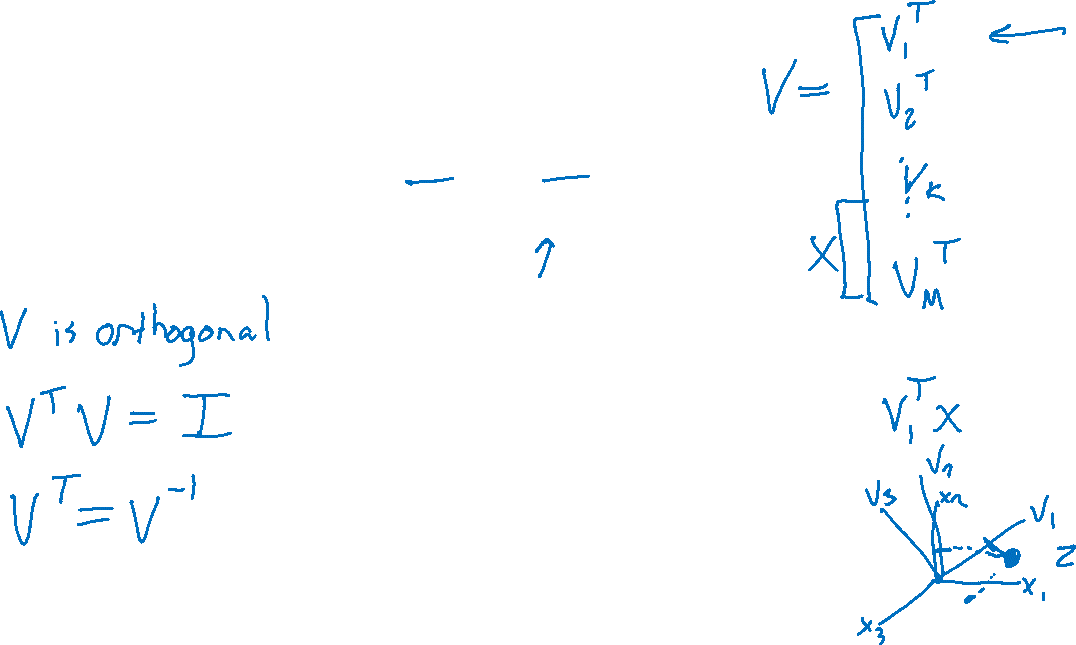 V = [ V₁ᵀ
V₂ᵀ
Vₖ
X
V_Mᵀ
V is orthogonal
VᵀV = I
Vᵀ = V⁻¹
V₁ᵀX
V₂
V₃
x₂
V₁
Z
x₁
x₃